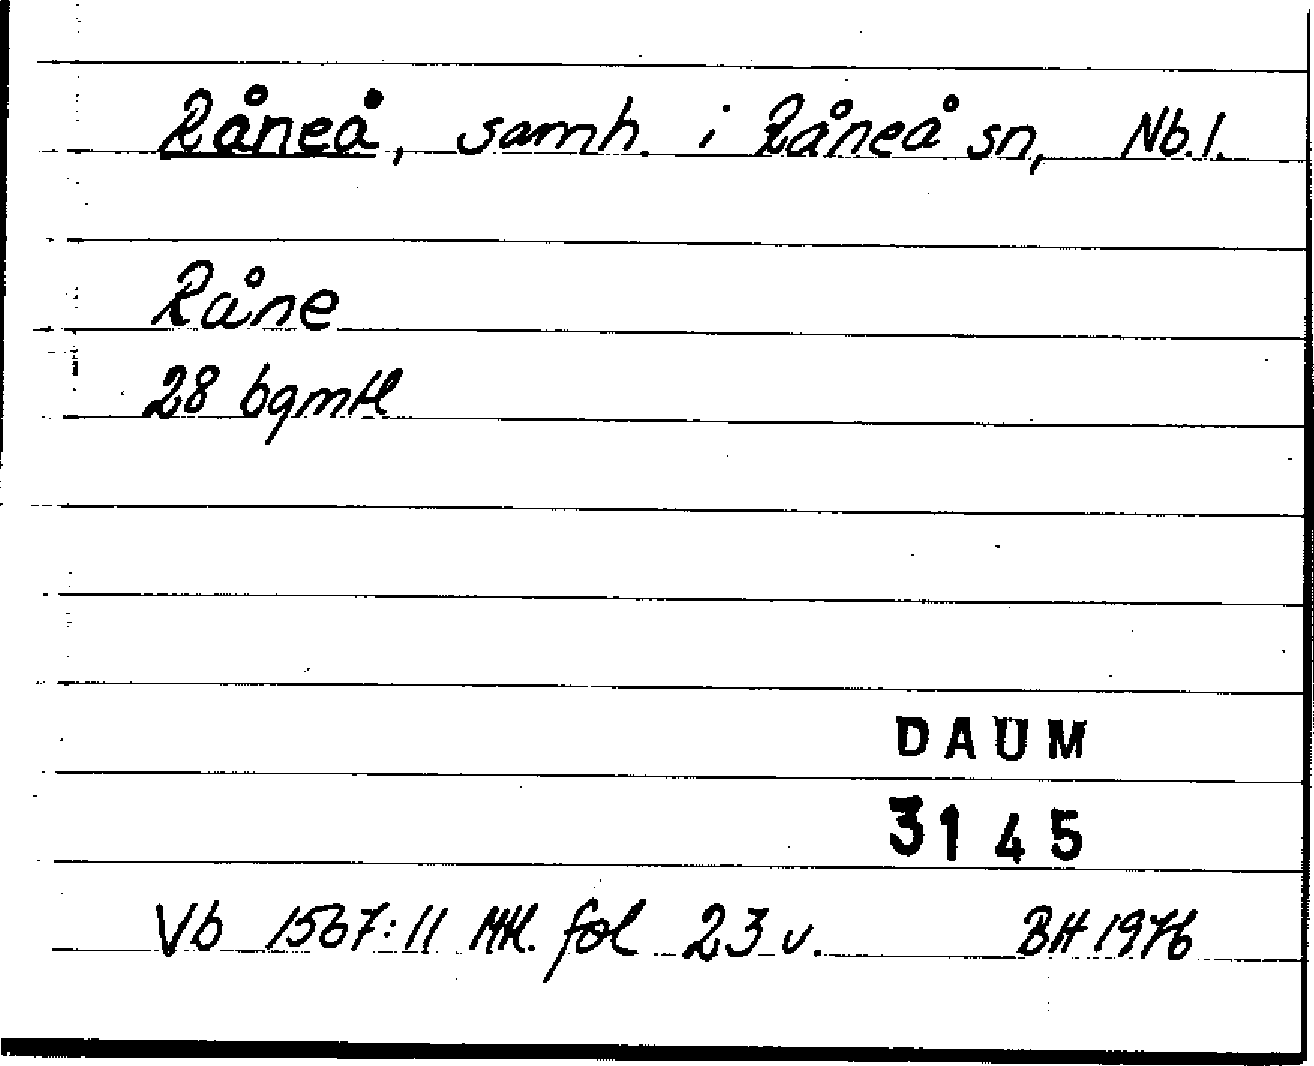 Råneå, samh. i Råneå sn, Nb.l.
Råne
28 bgmtl
DAUM
3145
Vb 1567:11 Mtl. fol 23 v. BH 1976